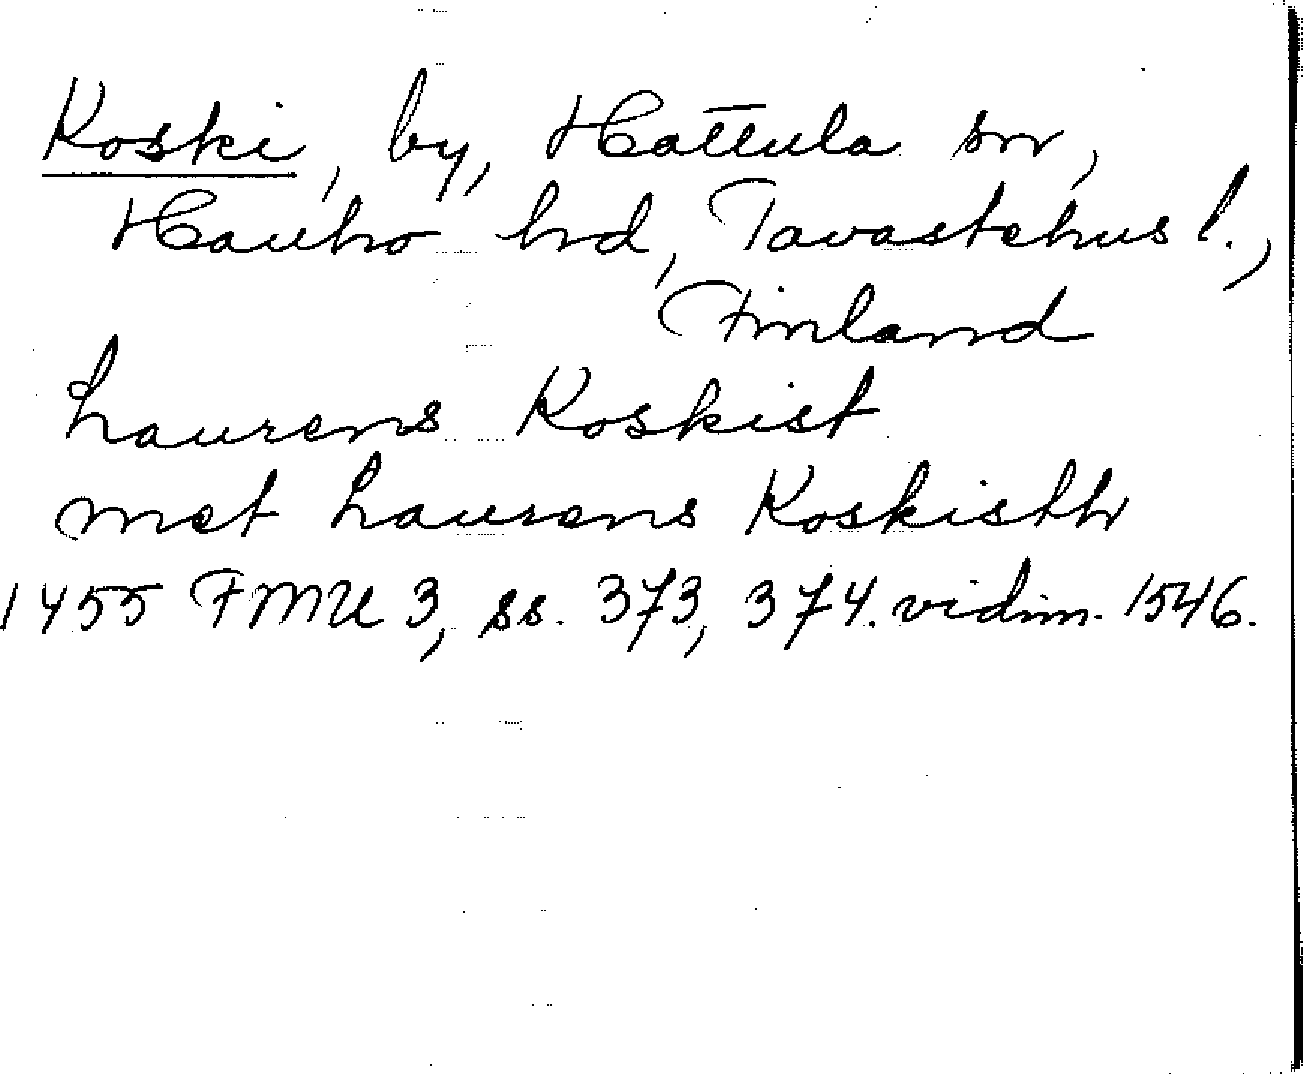 Koski, by, Hattula sn,
Hauho hd, Tavastehus l.,
Finland
Laurens Koskist
met Laurens Koskisth
1455 FMU 3, ss. 373, 374. vidim. 1546.